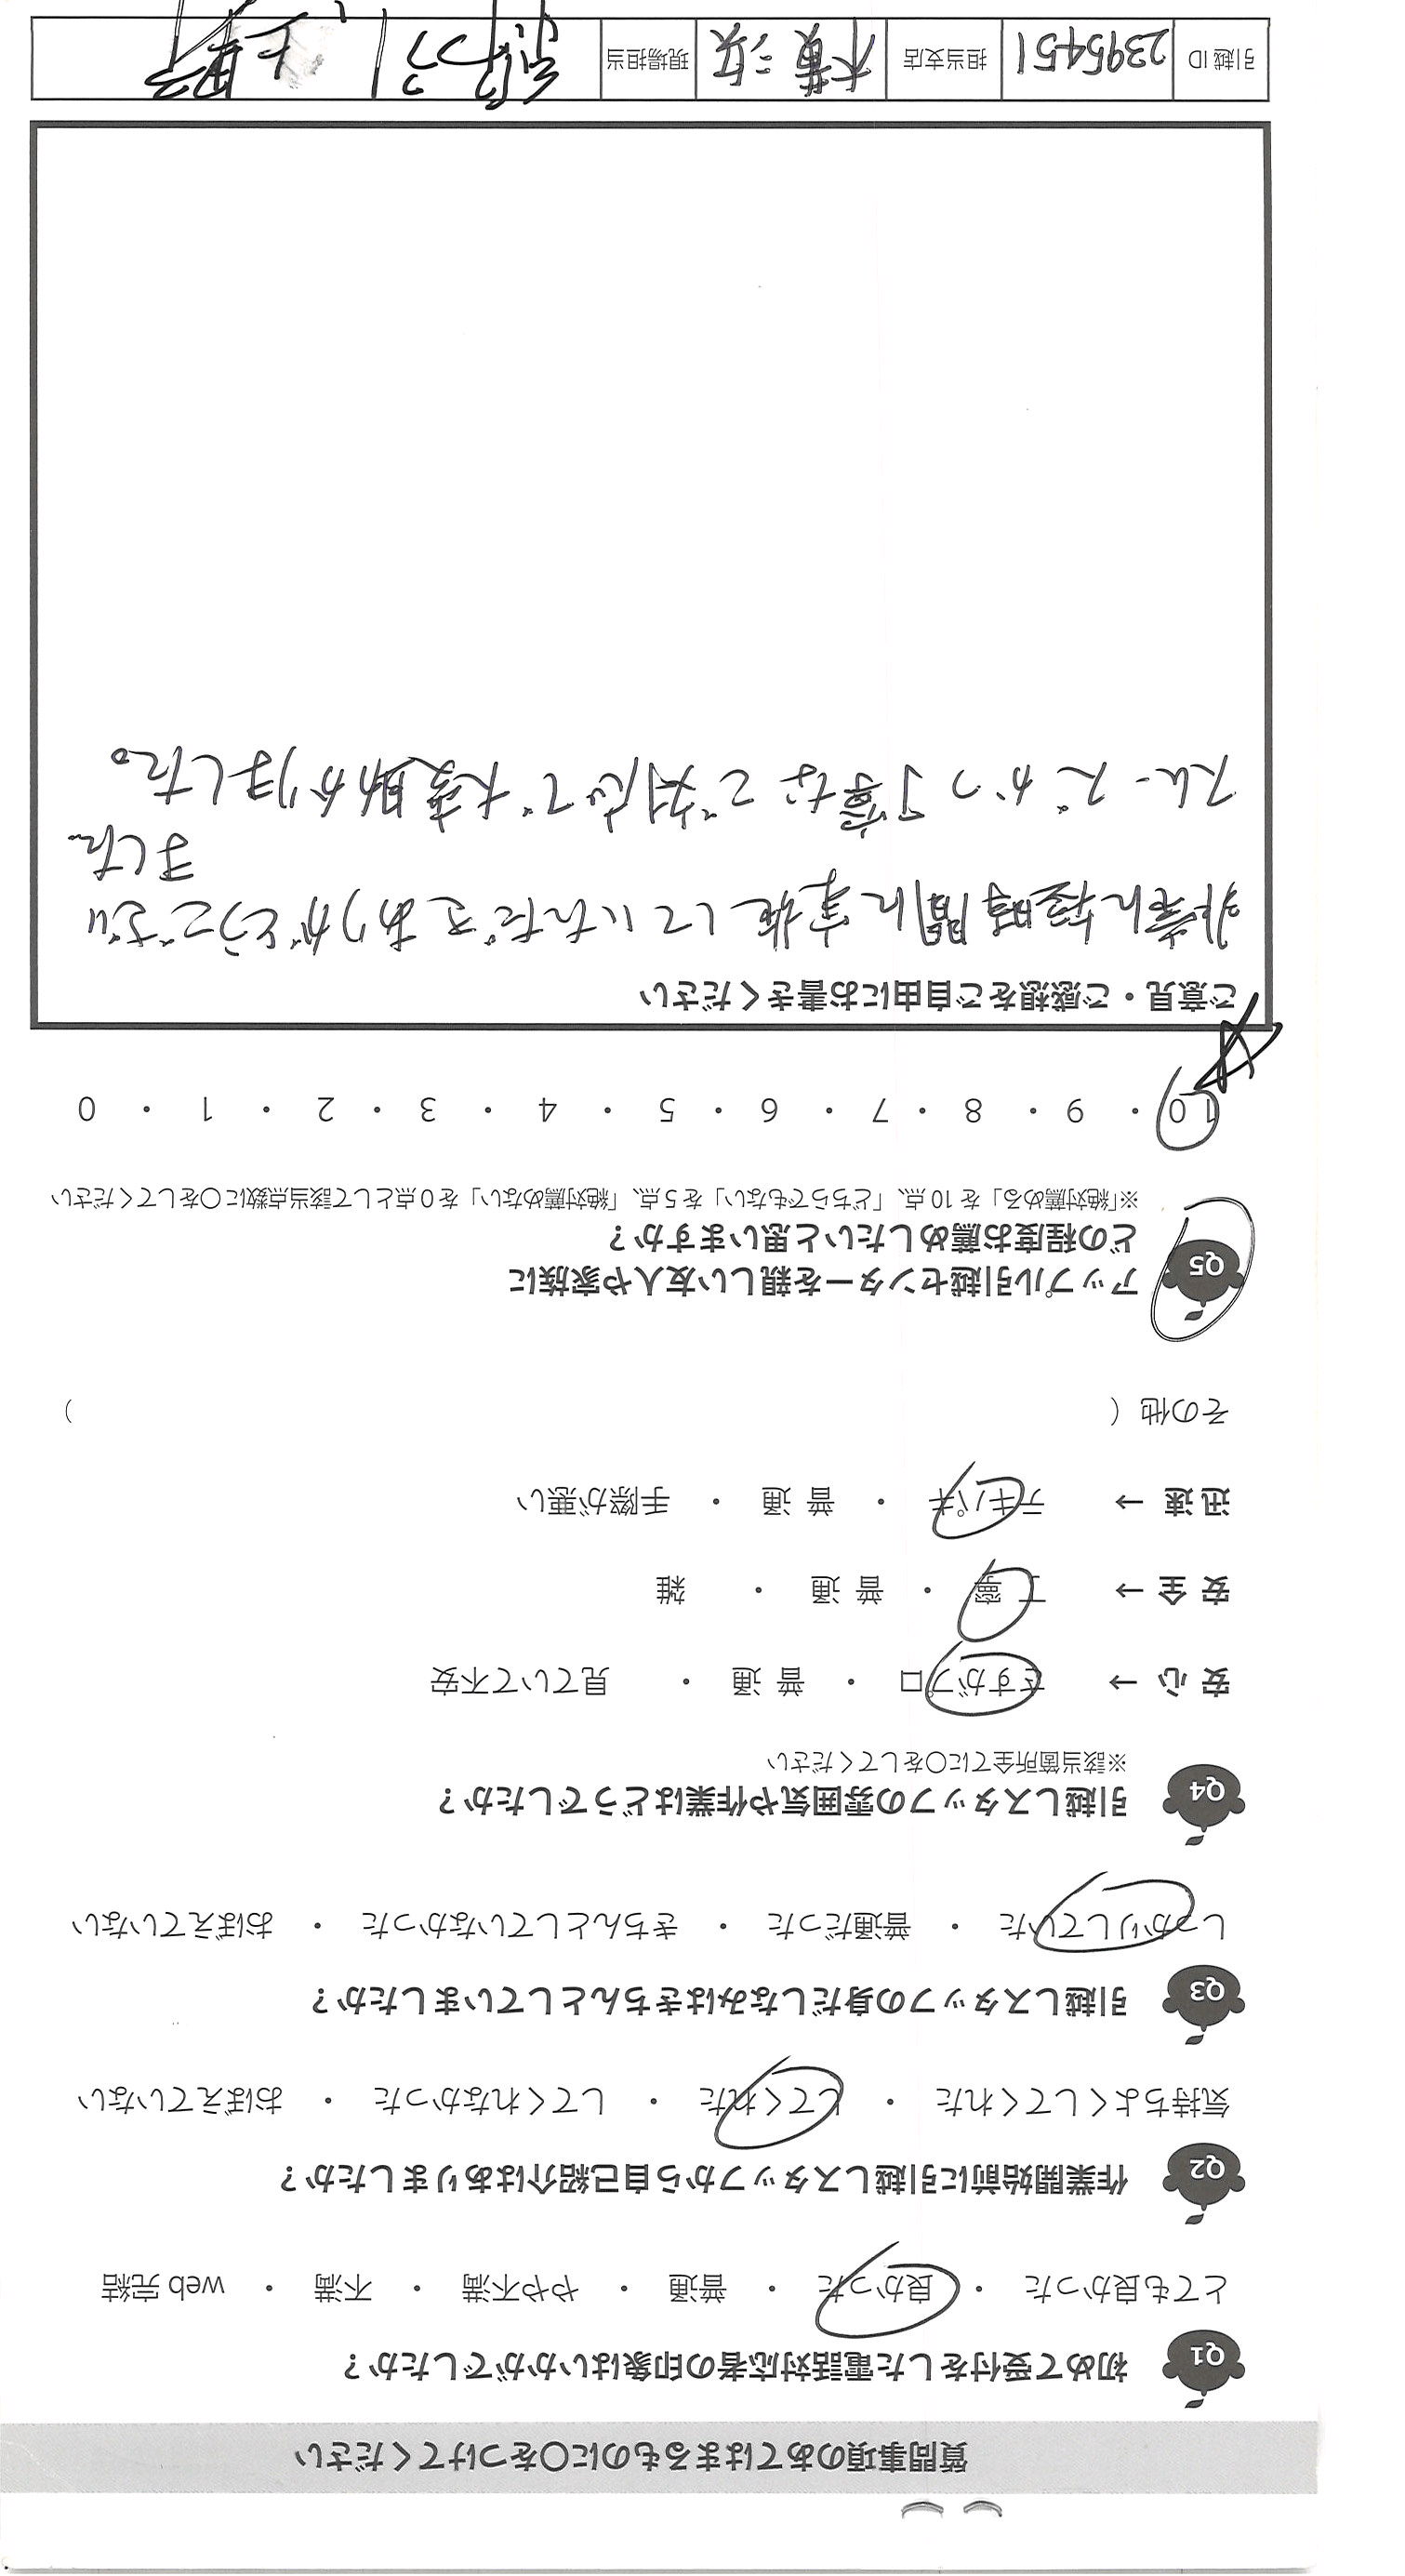 質問事項のあてはまるものに○をつけてください
Q1 初めて受付をした電話対応者の印象はいかがでしたか？
とても良かった ・ 良かった ・ 普通 ・ やや不満 ・ 不満 ・ web 完結
Q2 作業開始前に引越しスタッフから自己紹介はありましたか？
気持ちよくしてくれた ・ してくれた ・ してくれなかった ・ おぼえていない
Q3 引越しスタッフの身だしなみはきちんとしていましたか？
しっかりしていた ・ 普通だった ・ きちんとしていなかった ・ おぼえていない
Q4 引越しスタッフの雰囲気や作業はどうでしたか？
※該当箇所全てに○をしてください
安 心 → さすがプロ ・ 普 通 ・ 見ていて不安
安 全 → 丁 寧 ・ 普 通 ・ 雑
迅 速 → テキパキ ・ 普 通 ・ 手際が悪い
その他（ ）
Q5 アップル引越センターを親しい友人や家族に
どの程度お薦めしたいと思いますか？
※「絶対薦める」を 10 点、「どちらでもない」を 5 点、「絶対薦めない」を 0 点として該当点数に○をしてください
10 ・ 9 ・ 8 ・ 7 ・ 6 ・ 5 ・ 4 ・ 3 ・ 2 ・ 1 ・ 0
ご意見・ご感想をご自由にお書きください
非常に短時間に実施していただきありがとうござい
ました
スムーズかつ丁寧なご対応で大変助かりました。
引越 ID 2395451 担当支店 現場担当